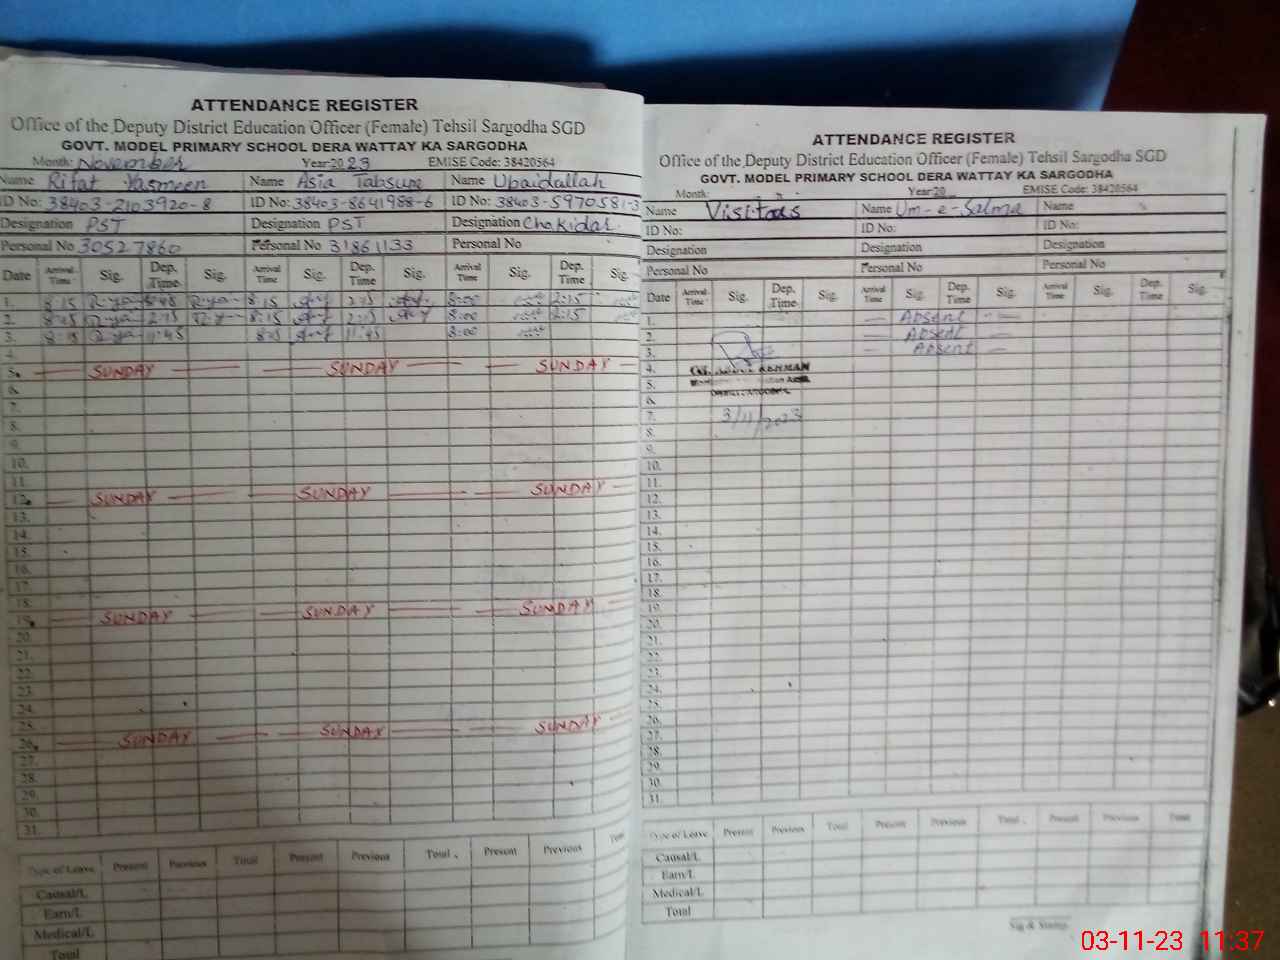 ATTENDANCE REGISTER
Office of the Deputy District Education Officer (Female) Tehsil Sargodha SGD
GOVT. MODEL PRIMARY SCHOOL DERA WATTAY KA SARGODHA
Month: November Year 2023 EMISE Code: 38420564
Name Rifat Yasmeen Name Asia Tabsum Name Ubaidallah
ID No: 38403-2103920-8 ID No: 38403-8641988-6 ID No: 38403-5970581-3
Designation PST Designation PST Designation Chokidar
Personal No 30527860 Personal No 31861133 Personal No
Date Arrival Time Sig. Dep. Time Sig. Arrival Time Sig. Dep. Time Sig. Arrival Time Sig. Dep. Time Sig.
1. 8:15 8:15 2:15 8:00 2:15
2. 8:15 2:15 8:15 2:15 8:00 2:15
3. 8:15 11:45 8:15 11:45 8:00
4.
5. SUNDAY SUNDAY SUNDAY
6.
7.
8.
9.
10.
11.
12. SUNDAY SUNDAY SUNDAY
13.
14.
15.
16.
17.
18.
19. SUNDAY SUNDAY SUNDAY
20.
21.
22.
23.
24.
25.
26. SUNDAY SUNDAY SUNDAY
27.
28.
29.
30.
31.
Type of Leave Present Previous Total Present Previous Total Present Previous Total
Causal/L
Earn/L
Medical/L
Total
ATTENDANCE REGISTER
Office of the Deputy District Education Officer (Female) Tehsil Sargodha SGD
GOVT. MODEL PRIMARY SCHOOL DERA WATTAY KA SARGODHA
Month: Year 20 EMISE Code: 38420564
Name Visitors Name Um-e-Salma Name
ID No: ID No: ID No:
Designation Designation Designation
Personal No Personal No Personal No
Date Arrival Time Sig. Dep. Time Sig. Arrival Time Sig. Dep. Time Sig. Arrival Time Sig. Dep. Time Sig.
1. — Absent —
2. — Absent —
3. — Absent —
4. REHMAN
5.
6.
7. 3/11/2023
8.
9.
10.
11.
12.
13.
14.
15.
16.
17.
18.
19.
20.
21.
22.
23.
24.
25.
26.
27.
28.
29.
30.
31.
Type of Leave Present Previous Total Present Previous Total Present Previous Total
Causal/L
Earn/L
Medical/L
Total
Sig & Stamp
03-11-23 11:37